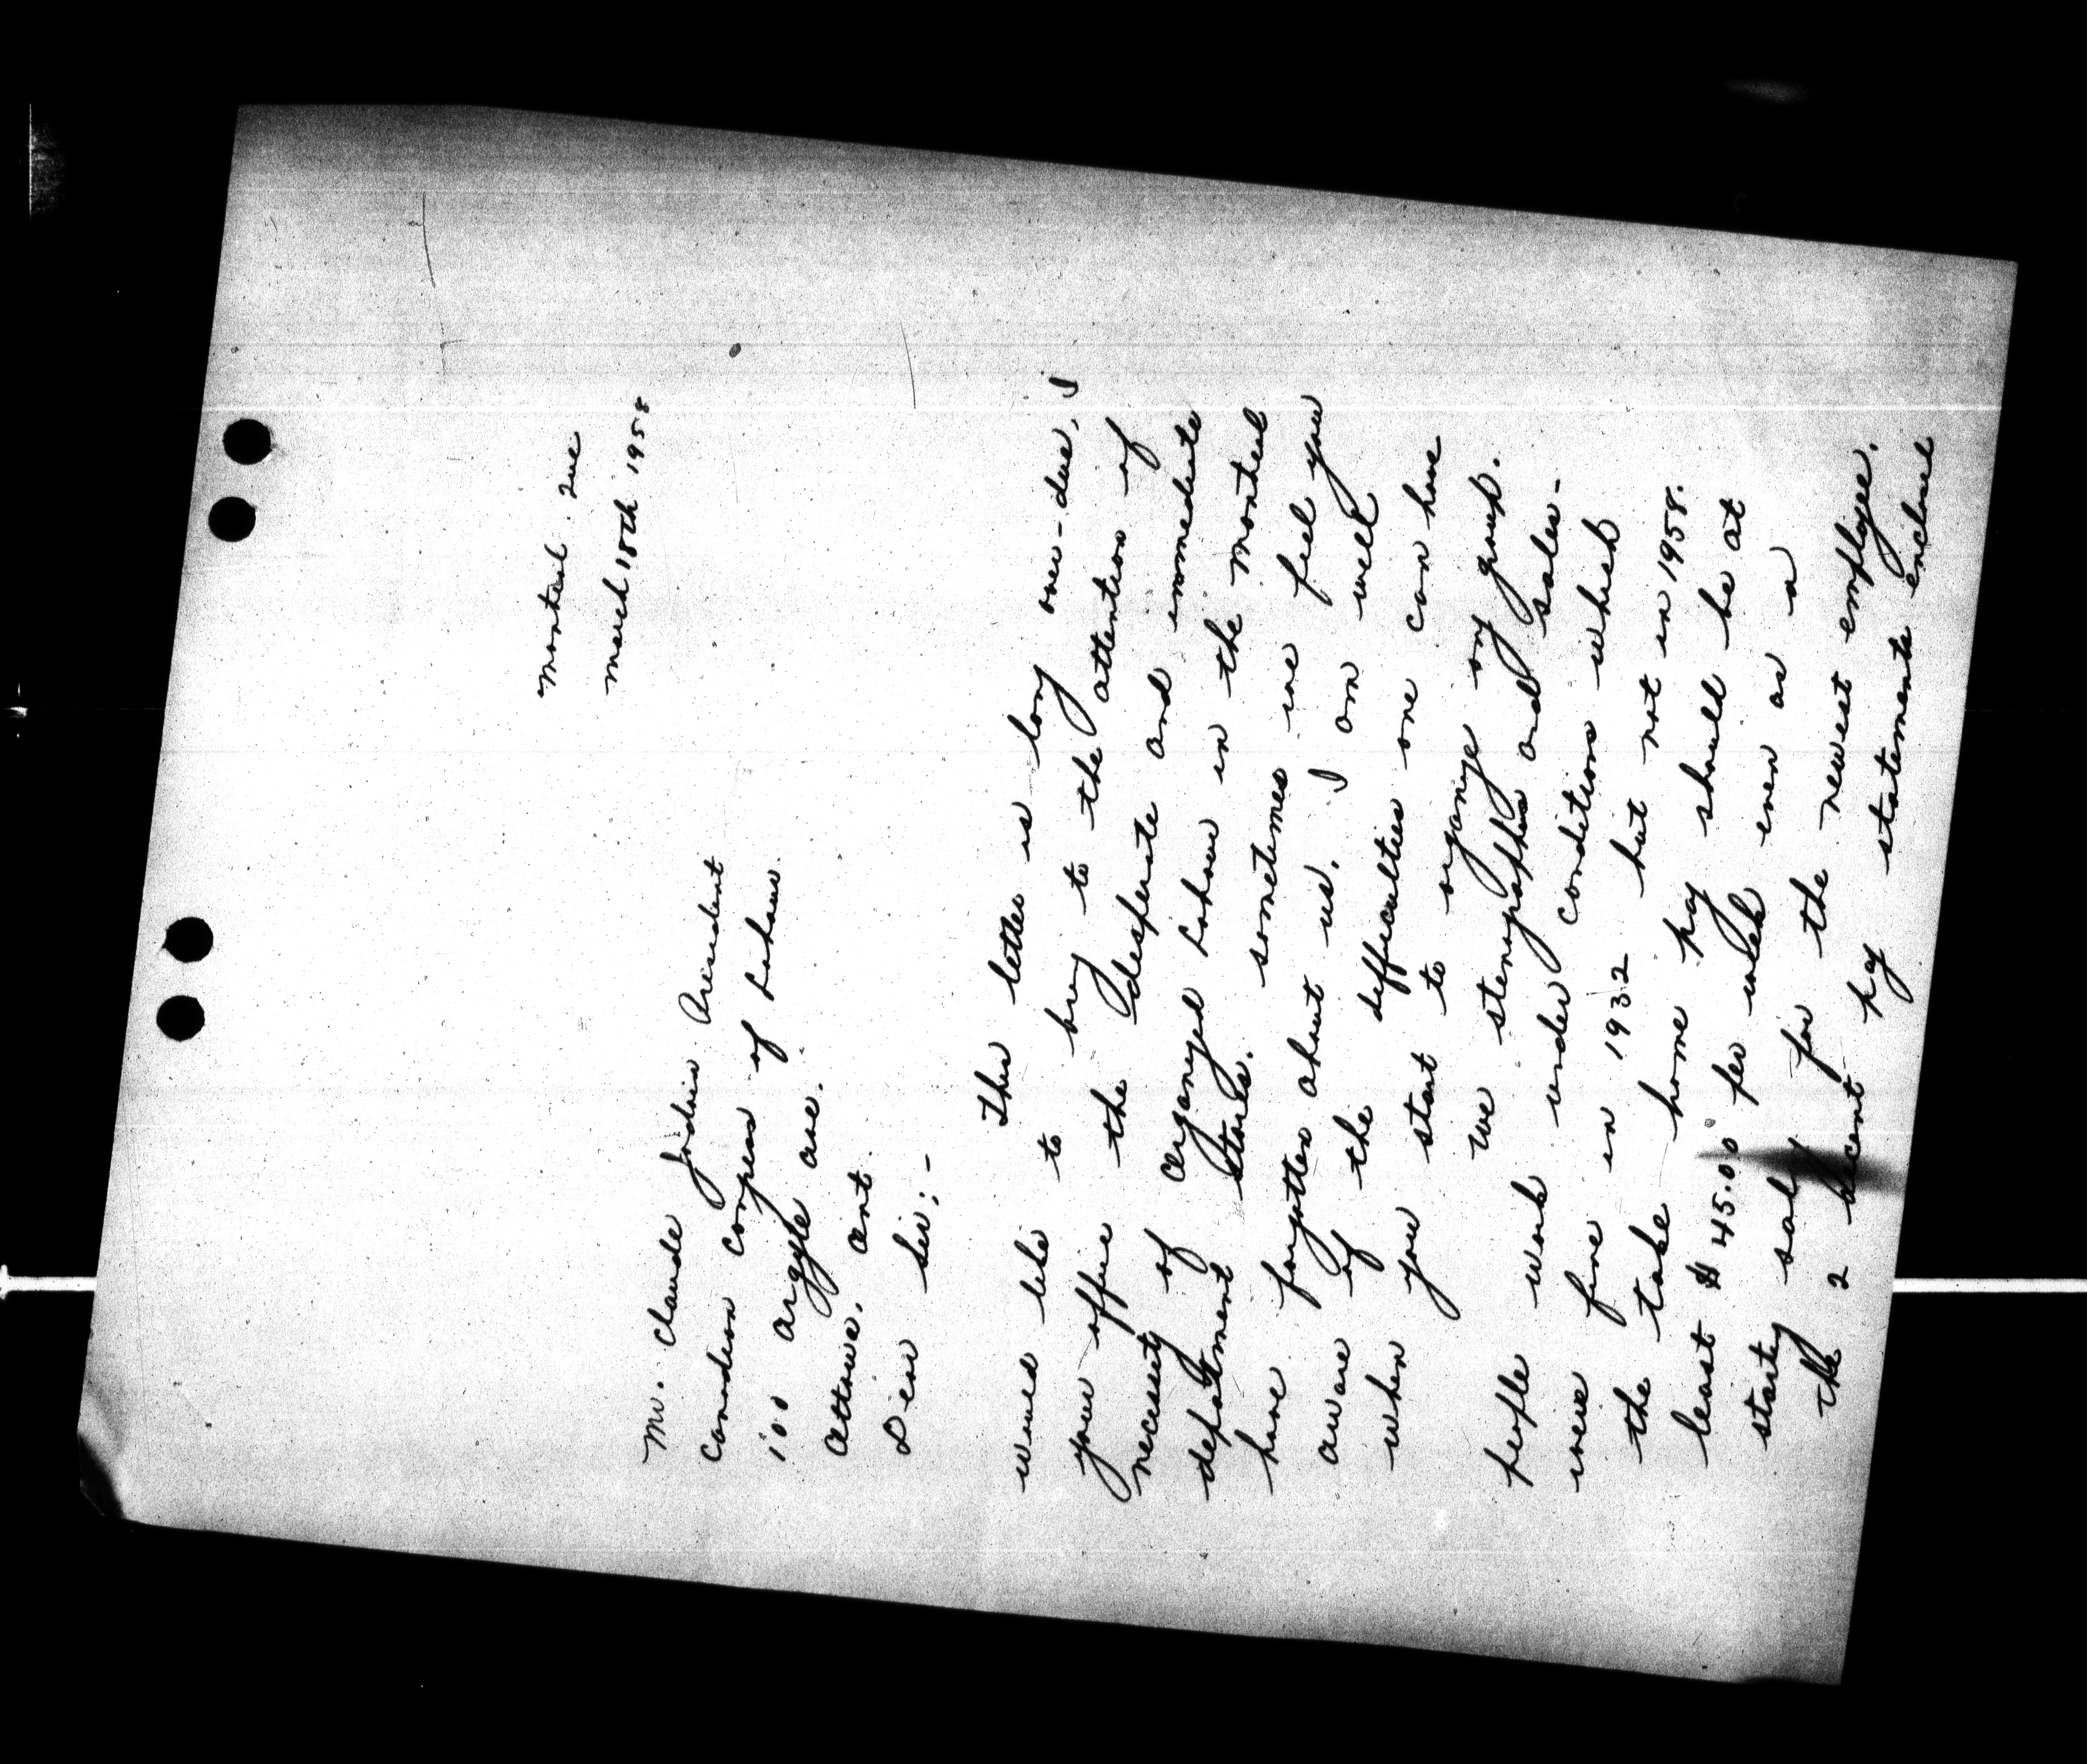 Montreal. Que
March 18th 1958
Mr. Claude Jodoin President
Canadian Congress of Labour.
100 Argyle Ave.
Ottawa. Ont.
Dear Sir:-
This letter is long over-due. I
would like to bring to the attention of
your office the desperate and immediate
necessity of organized Labour in the Montreal
department stores. Sometimes we feel you
have forgotten about us. I am well
aware of the difficulties one can have
when you start to organize any group.
We stenographers and sales-
people work under conditions which
were fine in 1932 but not in 1958.
the take home pay should be at
least $45.00 per week even as a
starting salary for the newest employee.
The 2 recent pay statements enclosed